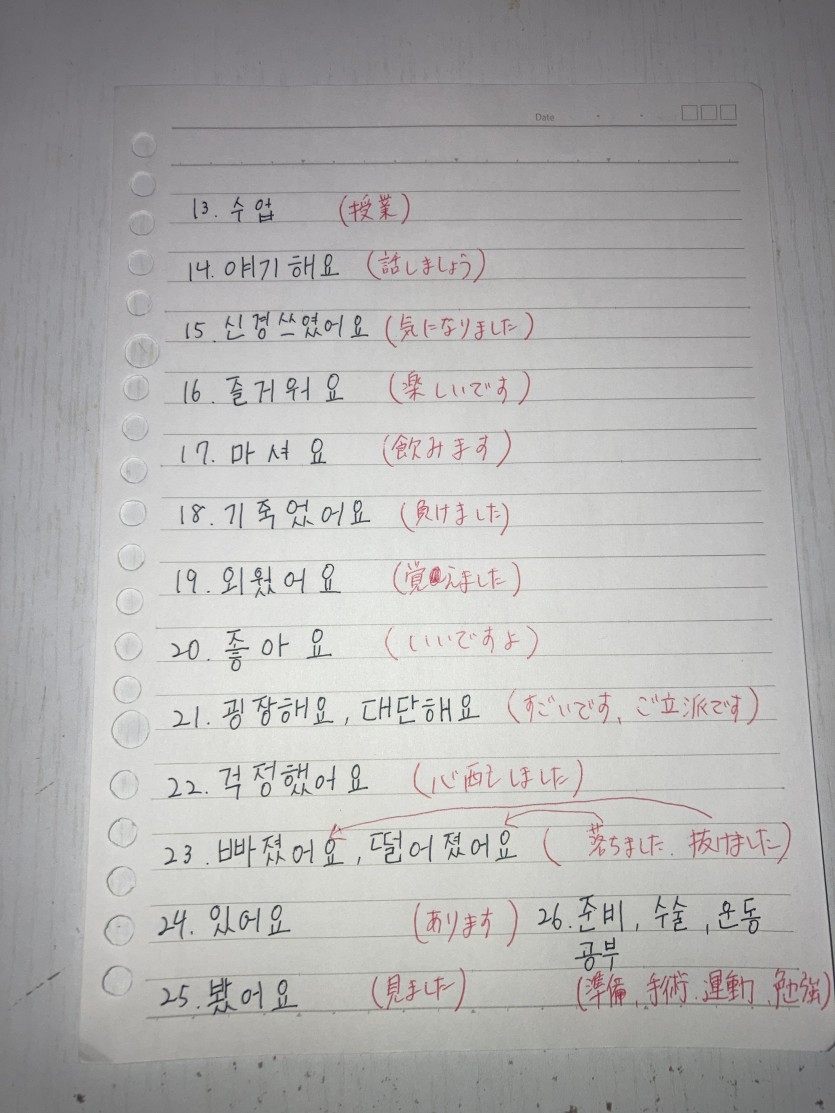 Date
13. 수업 (授業)
14. 얘기해요 (話しましょう)
15. 신경쓰였어요 (気になりました)
16. 즐거워요 (楽しいです)
17. 마셔요 (飲みます)
18. 기죽었어요 (負けました)
19. 외웠어요 (覚えました)
20. 좋아요 (いいですよ)
21. 굉장해요, 대단해요 (すごいです、ご立派です)
22. 걱정했어요 (心配しました)
23. 빠졌어요, 떨어졌어요 (落ちました、抜けました)
24. 있어요 (あります)
25. 봤어요 (見ました)
26. 준비, 수술, 운동
공부
(準備、手術、運動、勉強)